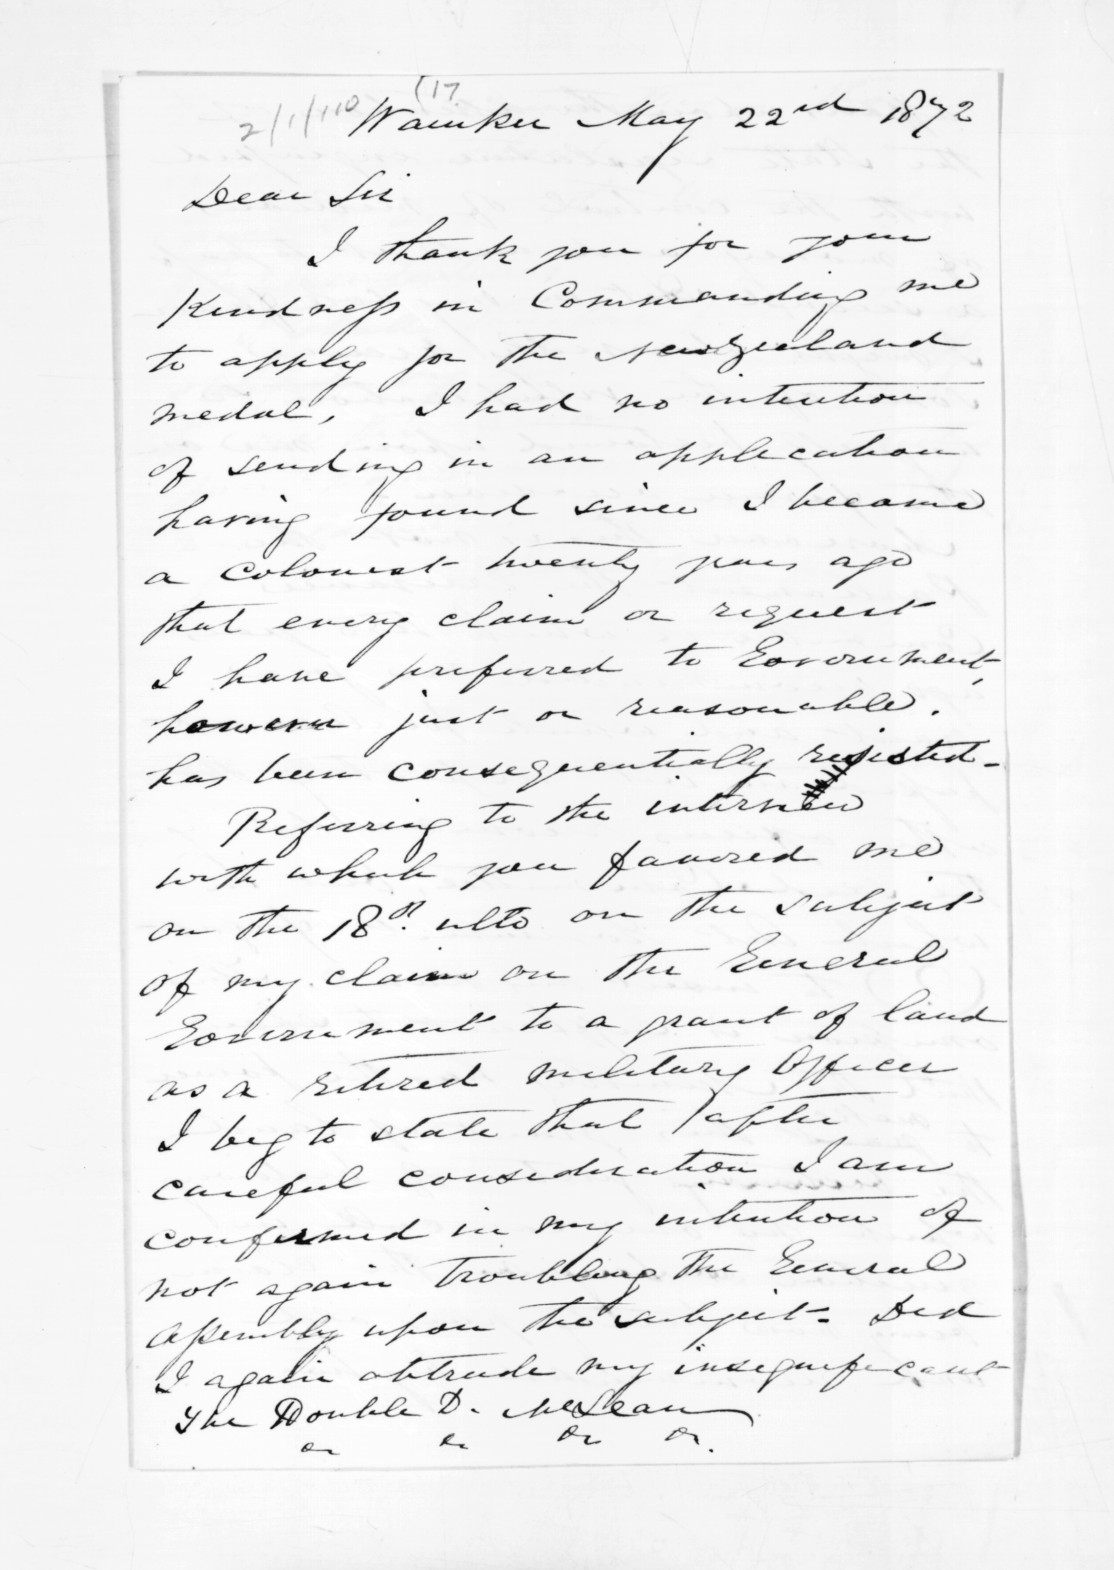 (17
2/1/110 Wainku May 22nd 1872
Dear Sir
I thank you for your
Kindness in Commanding me
to apply for the New Zealand
medal, I had no intention
of sending in an application
having found since I became
a colonist twenty years ago
that every claim or request
I have preferred to Government,
however just or reasonable.
has been consequentially rejected -
Referring to the interview
with which you favored me
on the 18st. ulto on the subject
of my claim on the General
Government to a grant of land
as a retired military Officer
I beg to state that after
careful consideration I am
confirmed in my intention of
not again troubling the General
Assembly upon the subject - Did
I again obtrude my insignificant
The Honble D. McLean